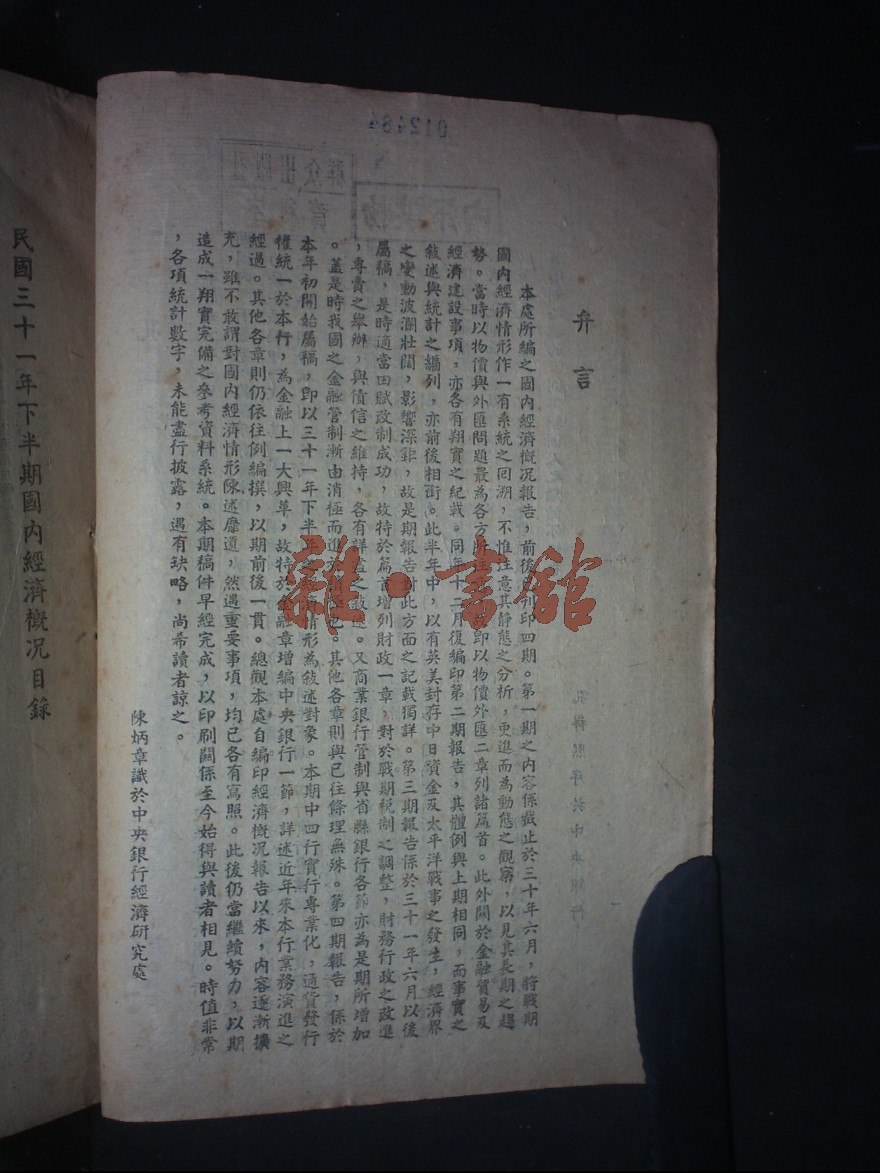 012484
弁言
本處所編之國內經濟概況報告，前後已刊印四期。第一期之內容係截止於三十年六月，將戰期
國內經濟情形作一有系統之回溯，不惟注意其靜態之分析，更進而為動態之觀察，以見其長期之趨
勢。當時以物價與外匯問題最為各方所注，故即以物價外匯二章列諸篇首。此外關於金融貿易及
經濟建設事項，亦各有翔實之紀載。同年十二月復編印第二期報告，其體例與上期相同，而事實之
敘述與統計之編列，亦前後相銜。此半年中，以有英美封存中日資金及太平洋戰事之發生，經濟界
之變動波瀾壯闊，影響深鉅，故是期報告對此方面之記載獨詳。第三期報告係於三十一年六月以後
屬稿，是時適當田賦改制成功，故特於篇首增列財政一章，對於戰期稅制之調整，財務行政之改進
，專賣之舉辦，與債信之維持，各有詳盡之敘述。又商業銀行管制與省縣銀行各節亦為是期所增加
。蓋是時我國之金融管制漸由消極而進於積極也。其他各章則與已往條理無殊。第四期報告，係於
本年初開始屬稿，即以三十一年下半年之經濟情形為敘述對象。本期中四行實行專業化，通貨發行
權統一於本行，為金融上一大興革，故特於金融章增編中央銀行一節，詳述近年來本行業務演進之
經過。其他各章則仍依往例編撰，以期前後一貫。總觀本處自編印經濟概況報告以來，內容逐漸擴
充，雖不敢謂對國內經濟情形陳述靡遺，然遇重要事項，均已各有寫照。此後仍當繼續努力，以期
造成一翔實完備之參考資料系統。本期稿件早經完成，以印刷關係至今始得與讀者相見。時值非常
，各項統計數字，未能盡行披露，遇有缺略，尚希讀者諒之。
陳炳章識於中央銀行經濟研究處
民國三十一年下半期國內經濟概況目錄
雜·書館